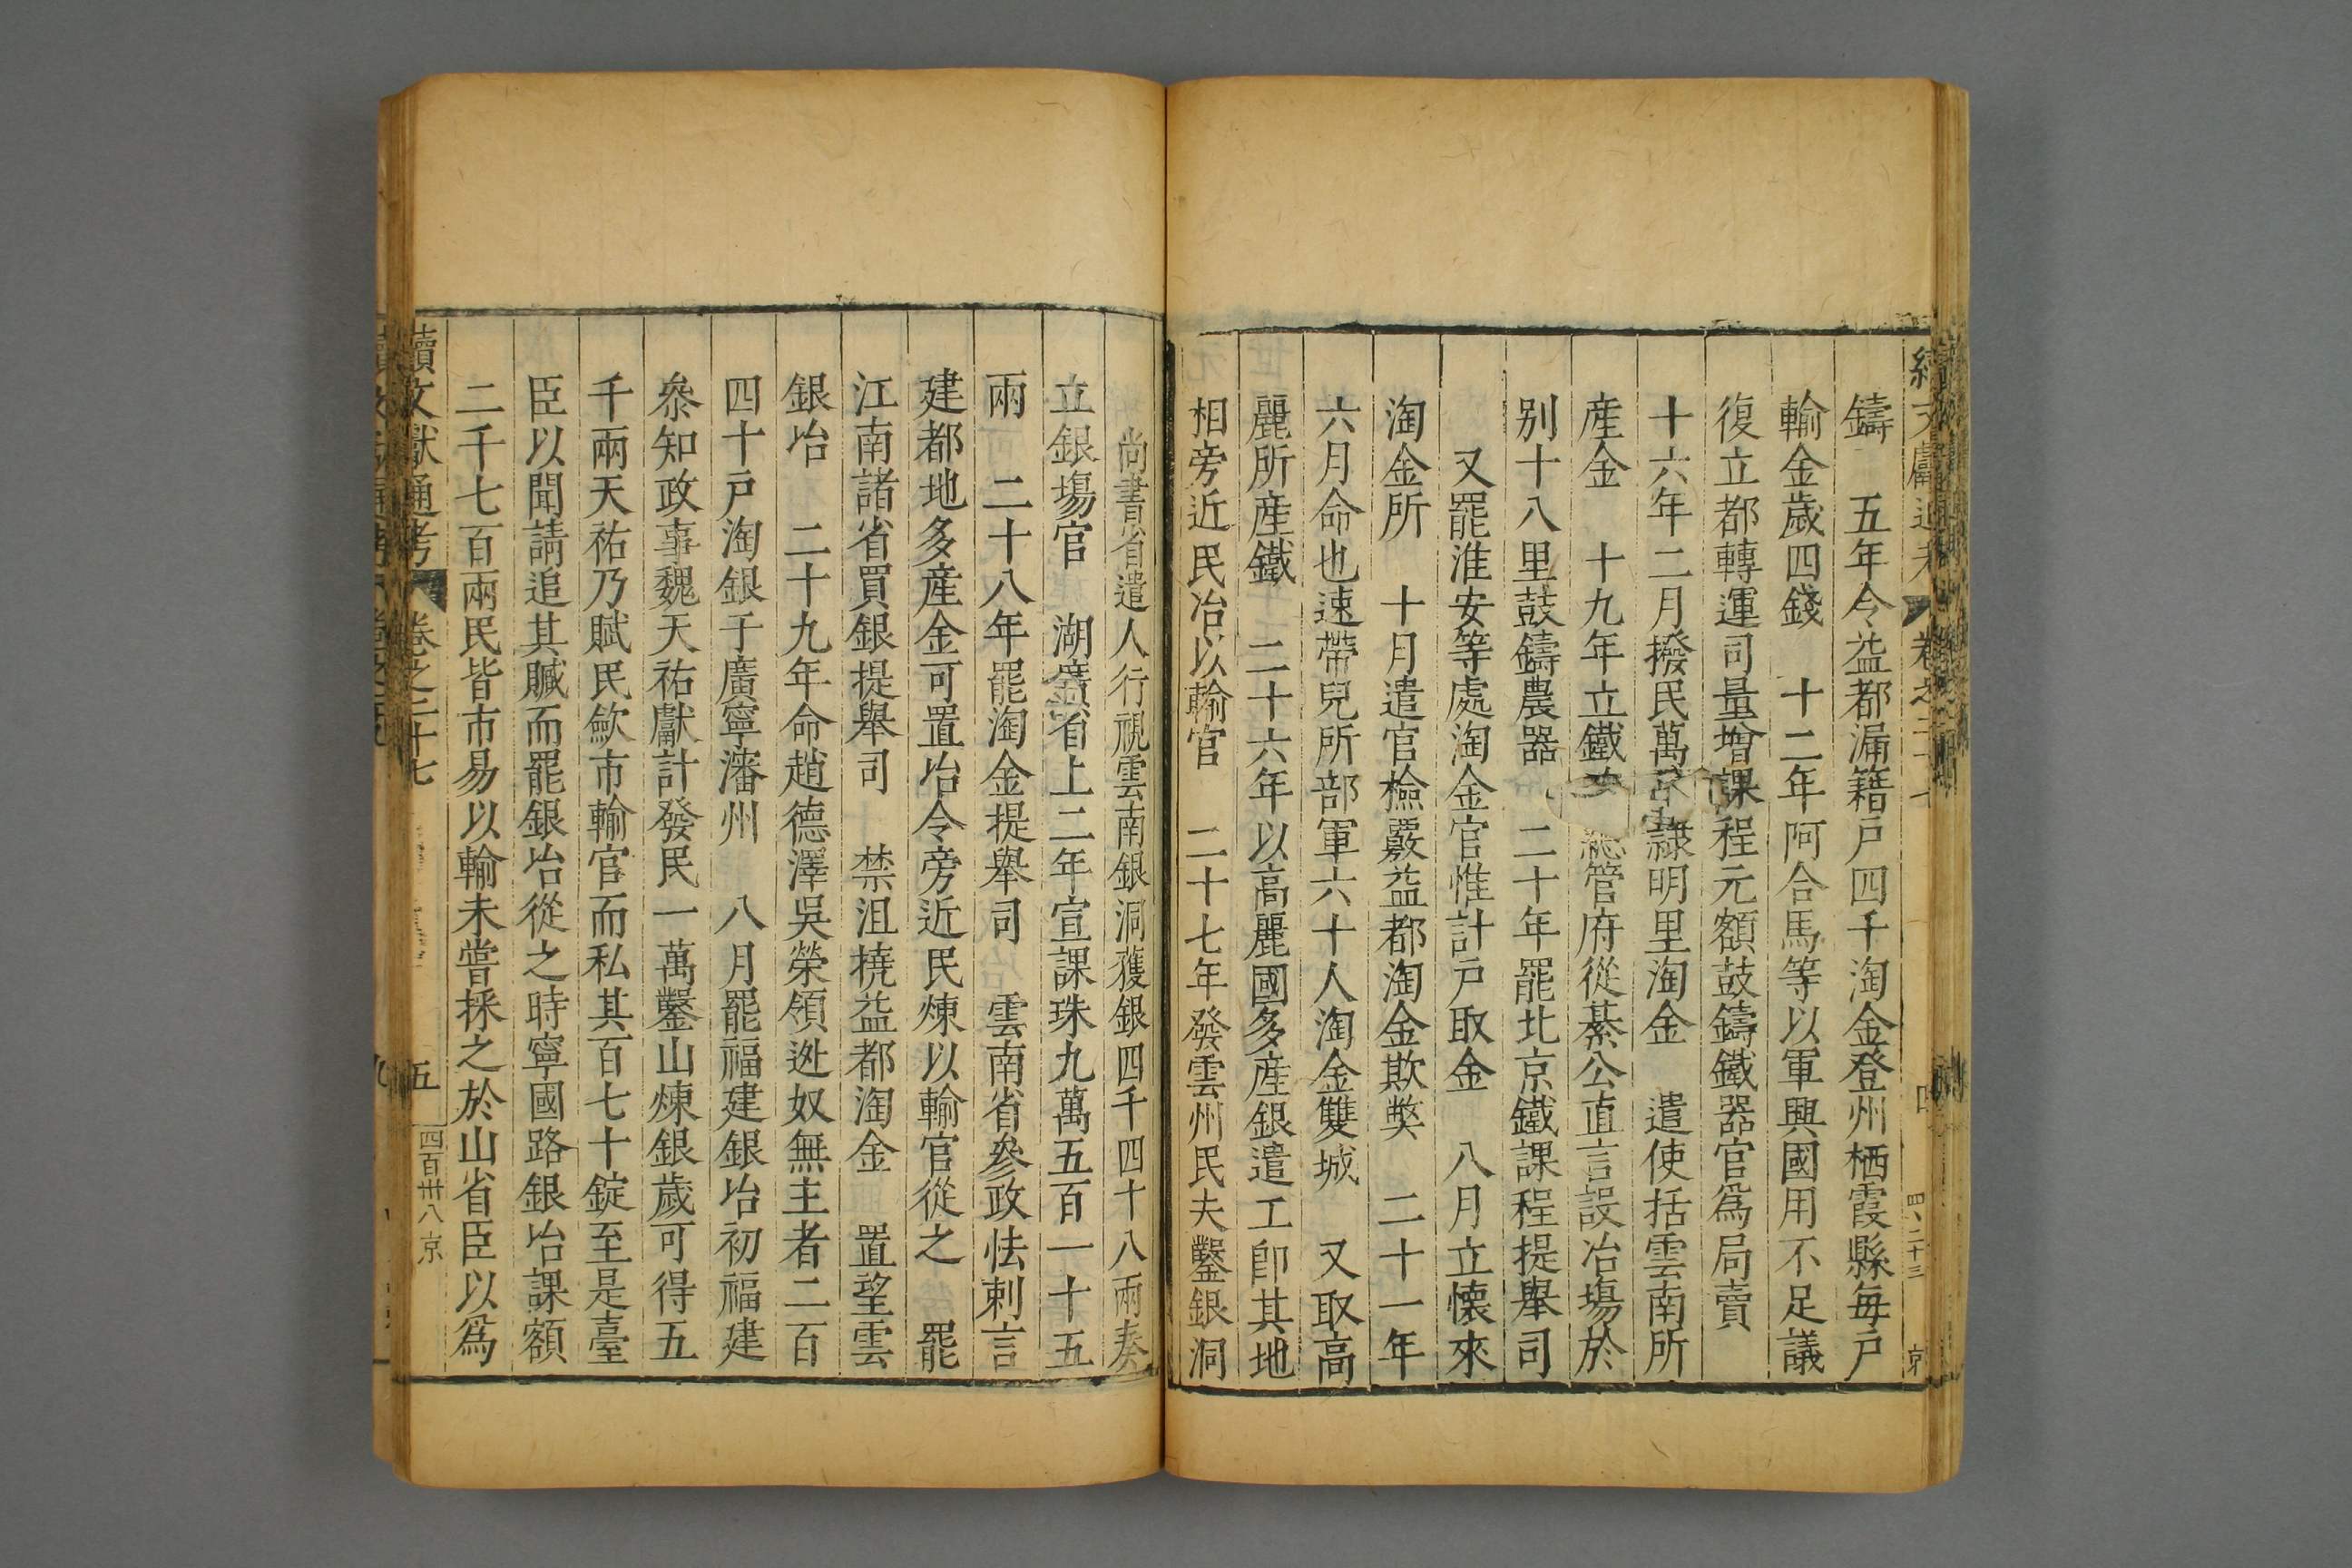 鑄　五年令益都漏籍戸四千淘金登州栖霞縣每戸
輸金歲四錢　十二年阿合馬等以軍興國用不足議
復立都轉運司量增課程元額鼓鑄鐵器官爲局賣
十六年二月撥民萬隸明里淘金　遣使括雲南所
産金　十九年立鐵總管府從綦公直言設冶塲於
别十八里鼓鑄農器　二十年罷北京鐵課程提舉司
又罷淮安等處淘金官惟計戸取金　八月立懷來
淘金所　十月遣官檢覈益都淘金欺獘　二十一年
六月命也速帶兒所部軍六十人淘金雙城　又取高
麗所産鐵　二十六年以高麗國多産銀遣工卽其地
相旁近民冶以輸官　二十七年發雲州民夫鑿銀洞
尚書省遣人行視雲南銀洞獲銀四千四十八兩奏
立銀塲官　湖廣省上二年宣課珠九萬五百一十五
兩　二十八年罷淘金提舉司　雲南省參政怯剌言
建都地多産金可置冶令旁近民煉以輸官從之　罷
江南諸省買銀提舉司　禁沮撓益都淘金　置望雲
銀冶　二十九年命趙德澤吳榮領迯奴無主者二百
四十戸淘銀于廣寧瀋州　八月罷福建銀冶初福建
叅知政事魏天祐獻計發民一萬鑿山煉銀歲可得五
千兩天祐乃賦民歛市輸官而私其百七十錠至是臺
臣以聞請追其贓而罷銀冶從之時寧國路銀冶課額
二千七百兩民皆市易以輸未嘗採之於山省臣以爲
續文獻通考　卷之二十七　五　四百卅八　京